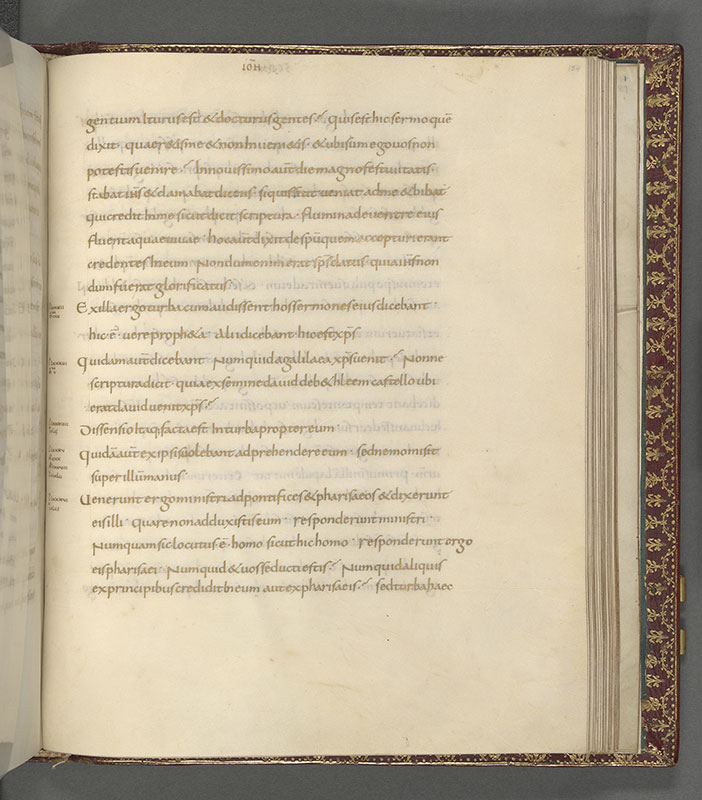 IOH̄
gentium Iturus est & docturus gentes. Qui est hic sermo quē
dixit quaer&is me & non inueni&is. & ubi sum ego uos non
potestis uenire. In nouissimo aūt die magno festiuitatis.
stabat ih̄s & clamabat dicens. si quis sitit ueniat ad me & bibat
qui credit in me sicut dicit scriptura. flumina de uentre eius
fluent aquae uiuae. hoc aūt dixit de sp̄u quem accepturi erant
credentes In eum. Nondum enim erat sp̄s datus. quia ih̄s non
dum fuerat glorificatus.
Ex illa ergo turba cum audissent hos sermones eius dicebant.
hic ē uere proph&a. Alii dicebant hic est xp̄s
Quidam aūt dicebant. Numquid a galilaea xp̄s uenit. Nonne
scriptura dicit quia ex semine dauid & de b&hleem castello ubi
erat dauid uenit xp̄s.
Dissensio Itaq; facta est In turba propter eum.
Quidā aūt ex ipsis uolebant adprehendere eum. sed nemo misit
super illum manus.
Uenerunt ergo ministri ad pontifices & pharisaeos & dixerunt
eis illi. Quare non adduxistis eum. responderunt ministri.
Numquam sic locutus ē homo sicut hic homo. responderunt ergo
eis pharisaei. Numquid & uos seducti estis. Numquid aliquis
ex principibus credidit In eum aut ex pharisaeis. sed turba haec